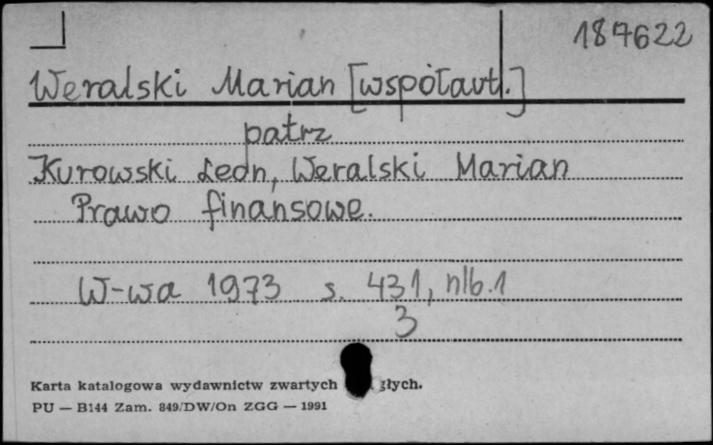 187622
Weralski Marian [współaut.]
patrz
Kurowski Leon, Weralski Marian
Prawo finansowe.
W-wa 1973 s. 431, nlb.1
3
Karta katalogowa wydawnictw zwartych głych.
PU — B144 Zam. 849/DW/On ZGG — 1991